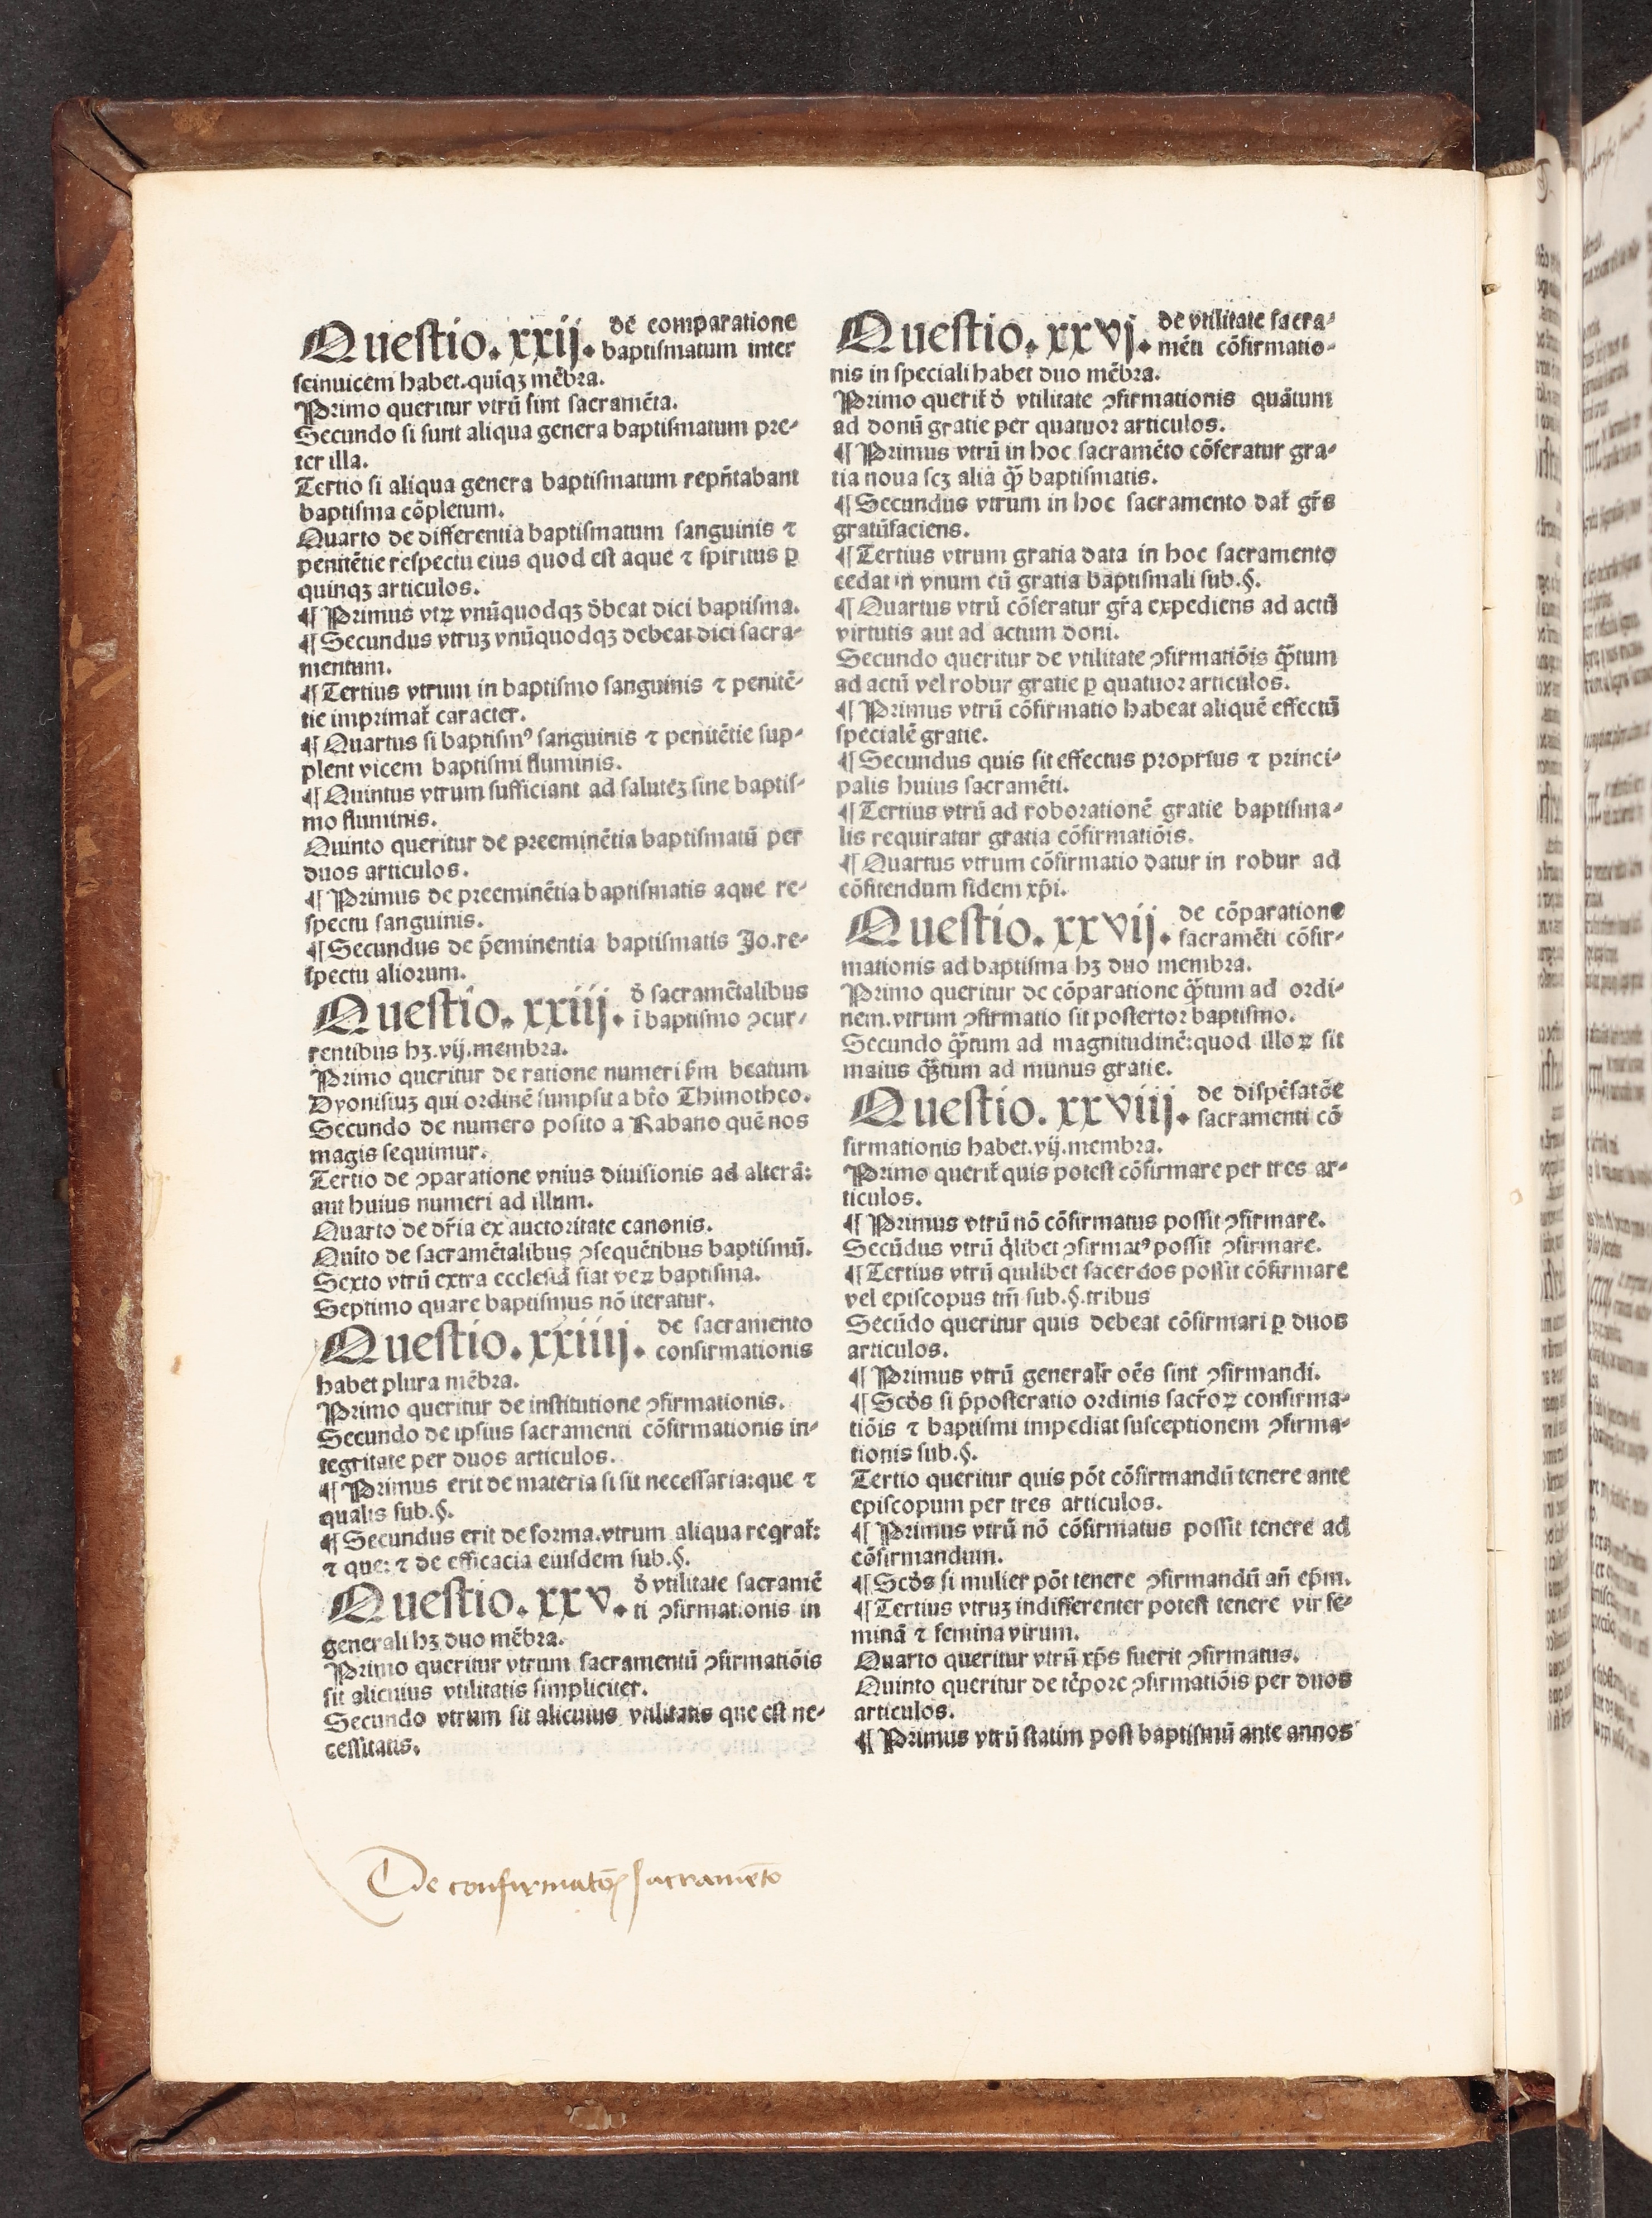 Questio. xxij. de comparatione
baptismatum inter
seinuicem habet.quiqꝫ mēbra.
Primo queritur vtrū sint sacramēta.
Secundo si sunt aliqua genera baptismatum pre-
ter illa.
Tertio si aliqua genera baptismatum repn̄tabant
baptisma cōpletum.
Quarto de differentia baptismatum sanguinis ⁊
penitētie respectu eius quod est aque ⁊ spiritus ꝑ
quinqꝫ articulos.
¶ Primus vtꝝ vnūquodqꝫ d̓beat dici baptisma.
¶ Secundus vtruꝫ vnūquodqꝫ debeat dici sacra-
mentum.
¶ Tertius vtrum in baptismo sanguinis ⁊ penitē-
tie imprimat̄ caracter.
¶ Quartus si baptismꝰ sanguinis ⁊ penitētie sup-
plent vicem baptismi fluminis.
¶ Quintus vtrum sufficiant ad saluteꝫ sine baptis-
mo fluminis.
Quinto queritur de preeminētia baptismatū per
duos articulos.
¶ Primus de preeminētia baptismatis aque re-
spectu sanguinis.
¶ Secundus de p̄eminentia baptismatis Jo.re-
spectu aliorum.
Questio. xxiij. d̓ sacramētalibus
ī baptismo ꝯcur-
rentibus hꝫ.vij.membra.
Primo queritur de ratione numeri ẜm beatum
Dyonisiuꝫ qui ordinē sumpsit a bt̄o Thimotheo.
Secundo de numero posito a Rabano quē nos
magis sequimur.
Tertio de ꝯparatione vnius diuisionis ad alterā:
aut huius numeri ad illum.
Quarto de dr̄ia ex auctoritate canonis.
Quīto de sacramētalibus ꝯsequētibus baptismū.
Sexto vtrū extra ecclesiā fiat veꝝ baptisma.
Septimo quare baptismus nō iteratur.
Questio. xxiiij. de sacramento
confirmationis
habet plura mēbra.
Primo queritur de institutione ꝯfirmationis.
Secundo de ipsius sacramenti cōfirmationis in-
tegritate per duos articulos.
¶ Primus erit de materia si sit necessaria:que ⁊
qualis sub.§.
¶ Secundus erit de forma.vtrum aliqua reqrat̄:
⁊ que: ⁊ de efficacia eiusdem sub.§.
Questio. xxv. d̓ vtilitate sacramē
ti ꝯfirmationis in
generali hꝫ duo mēbra.
Primo queritur vtrum sacramentū ꝯfirmatiōis
sit alicuius vtilitatis simpliciter.
Secundo vtrum sit alicuius vtilitatis que est ne-
cessitatis.
Questio. xxvj. de vtilitate sacra-
mēti cōfirmatio-
nis in speciali habet duo mēbra.
Primo querit̄ d̓ vtilitate ꝯfirmationis quātum
ad donū gratie per quatuor articulos.
¶ Primus vtrū in hoc sacramēto cōferatur gra-
tia noua scꝫ alia q̄ꝫ baptismatis.
¶ Secundus vtrum in hoc sacramento dat̄ gr̄s
gratūfaciens.
¶ Tertius vtrum gratia data in hoc sacramento
cedat in vnum cū gratia baptismali sub.§.
¶ Quartus vtrū cōferatur gr̄a expediens ad actū
virtutis aut ad actum doni.
Secundo queritur de vtilitate ꝯfirmatiōis q̄ꝫtum
ad actū vel robur gratie ꝑ quatuor articulos.
¶ Primus vtrū cōfirmatio habeat aliquē effectū
specialē gratie.
¶ Secundus quis sit effectus proprius ⁊ princi-
palis huius sacramēti.
¶ Tertius vtrū ad roborationē gratie baptisma-
lis requiratur gratia cōfirmatiōis.
¶ Quartus vtrum cōfirmatio datur in robur ad
cōfitendum fidem xp̄i.
Questio. xxvij. de cōparatione
sacramēti cōfir-
mationis ad baptisma hꝫ duo membra.
Primo queritur de cōparatione q̄ꝫtum ad ordi-
nem.vtrum ꝯfirmatio sit posterior baptismo.
Secundo q̄ꝫtum ad magnitudinē:quod illoꝝ sit
maius q̄ꝫtum ad munus gratie.
Questio. xxviij. de dispēsatōe
sacramenti cō
firmationis habet.vij.membra.
Primo querit̄ quis potest cōfirmare per tres ar-
ticulos.
¶ Primus vtrū nō cōfirmatus possit ꝯfirmare.
Secūdus vtrū q̇libet ꝯfirmatꝰ possit ꝯfirmare.
¶ Tertius vtrū quilibet sacerdos possit cōfirmare
vel episcopus tm̄ sub.§.tribus
Secūdo queritur quis debeat cōfirmari ꝑ duos
articulos.
¶ Primus vtrū generalr̄ oēs sint ꝯfirmandi.
¶ Scd̓s si p̄posteratio ordinis sacr̄oꝝ confirma-
tiōis ⁊ baptismi impediat susceptionem ꝯfirma-
tionis sub.§.
Tertio queritur quis pōt cōfirmandū tenere ante
episcopum per tres articulos.
¶ Primus vtrū nō cōfirmatus possit tenere ad
cōfirmandum.
¶ Scd̓s si mulier pōt tenere ꝯfirmandū an̄ ep̄m.
¶ Tertius vtruꝫ indifferenter potest tenere vir fe-
minā ⁊ femina virum.
Quarto queritur vtrū xp̄s fuerit ꝯfirmatus.
Quinto queritur de tēpore ꝯfirmatiōis per duos
articulos.
¶ Primus vtrū statim post baptismū ante annos
De confirmatōis sacramēto